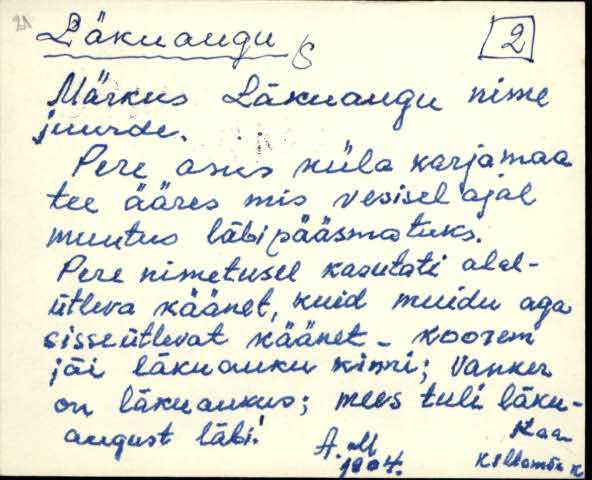 21
Läkuaugu S
2
Märkus Läkuaugu nime
juurde.
Pere asus küla karjamaa
tee ääres mis vesisel ajal
muutus läbipääsmatuks.
Pere nimetusel kasutati alal-
ütleva käänet, kuid muidu aga
sisseütlevat käänet - koorem
jäi läkuauku kinni; vanker
on läkuaukus; mees tuli läku-
august läbi!
A. M
1904.